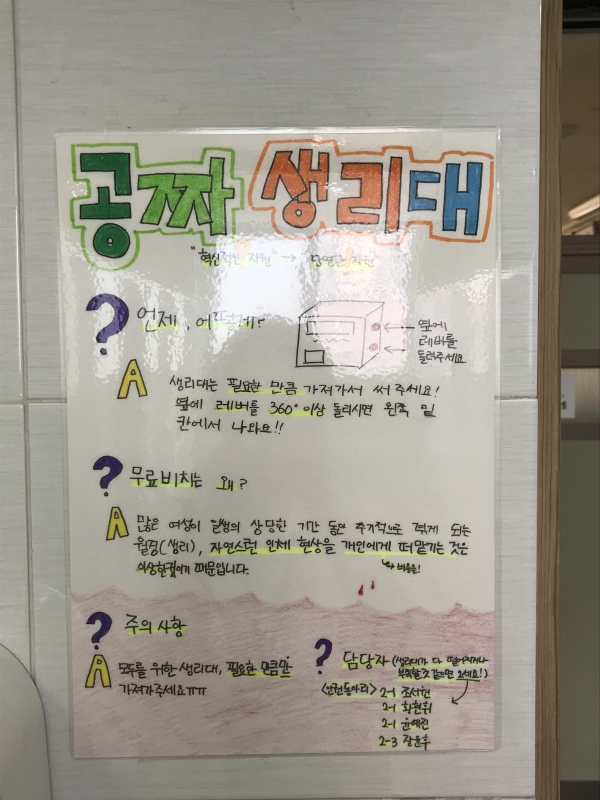 공짜 생리대
"혁신적인 지원" → 당연한 지원
? 언제, 어떻게?
← 옆에
레버를
← 돌려주세요
A 생리대는 필요한 만큼 가져가서 써 주세요!
옆에 레버를 360° 이상 돌리시면 왼쪽 밑
칸에서 나와요!!
? 무료비치는 왜?
A 많은 여성이 일생의 상당한 기간 동안 주기적으로 겪게 되는
월경(생리), 자연스런 인체 현상을 개인에게 떠맡기는 것은
이상한 일이기 때문입니다.
↳ 비용을!
? 주의 사항
A 모두를 위한 생리대, 필요한 만큼만
가져가주세요ㅠㅠ
? 담당자 (생리대가 다 떨어지거나
부족할 것 같으면 오세요!)
<인권동아리> 2-1 조서현
2-1
2-1 윤예진
2-3 장윤수